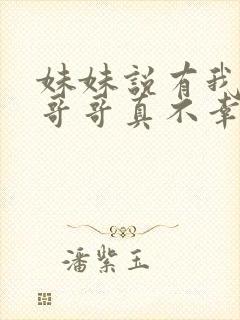 妹妹説有我
哥哥真不幸
潘紫玉